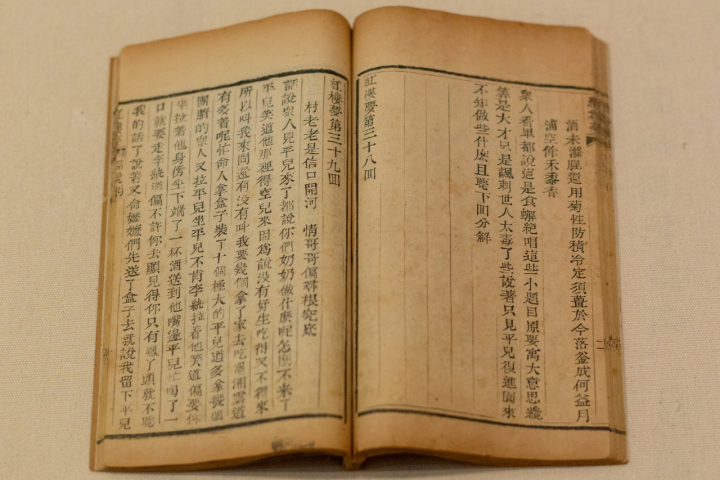 酒未滌腥還用菊性防積冷定須薑於今落釜成何益月
浦空餘禾黍香
衆人看畢都說這是食蠏絕唱這些小題目原要寓大意思纔
算是大才只是諷刺世人太毒了些說着只見平兒復進園來
不知做些什麽且聽下回分解
紅樓夢第三十八回
紅樓夢第三十九回
村老老是信口開河 情哥哥偏尋根究底
話說衆人見平兒來了都說你們奶奶做什麽呢怎麽不來了
平兒笑道他那裡得空兒來因爲說没有好生吃得又不得來
所以叫我來問還有没有叫我要幾個拿了家去吃罷湘雲道
有多着呢忙命人拿盒子裝了十個極大的平兒道多拿幾個
團臍的衆人又拉平兒坐平兒不肯李紈拉着他笑道偏要你
坐拉着他身傍坐下端了一杯酒送到他嘴邊平兒忙喝了一
口就要走李紈道偏不許你去顯見得你只有鳳丫頭就不聽
我的話了說着又命嬤嬤們先送了盒子去就說我留下平兒
紅樓夢